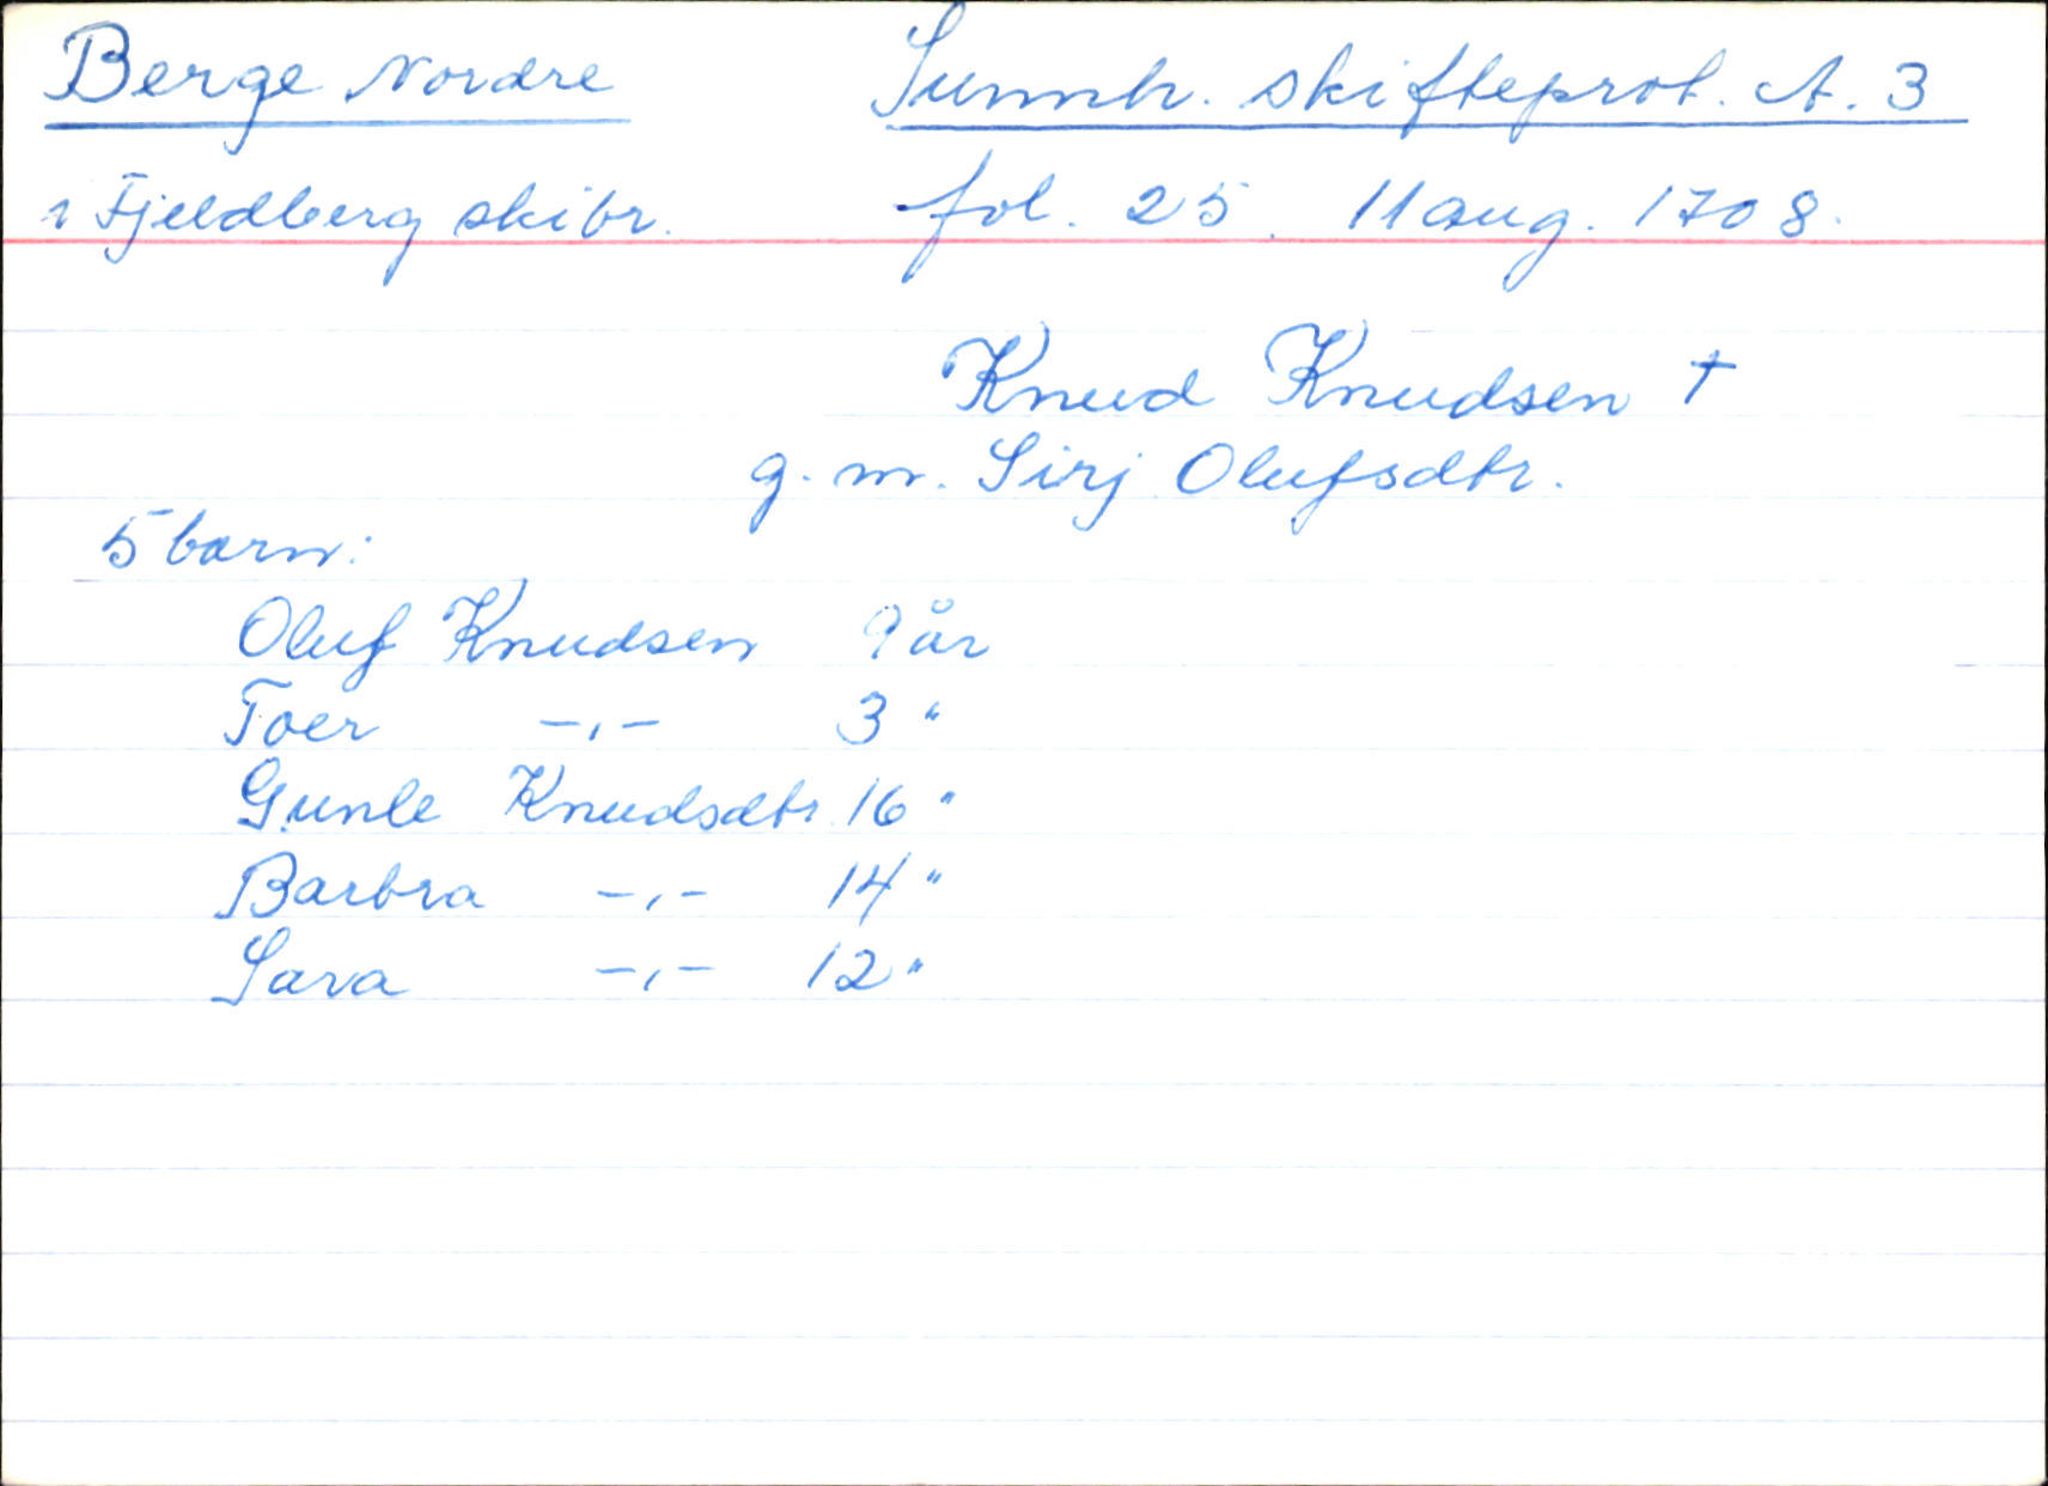 Berge Nordre Sunnh. skifteprot. A. 3
i Fjeldberg skibr. fol. 25. 11 aug. 1708.
Knud Knudsen †
g. m. Sirj Olufsdtr.
5 barn:
Oluf Knudsen 9 år
Toer -,- 3 "
Gunle Knudsdtr. 16 "
Barbra -,- 14 "
Sara -,- 12 "